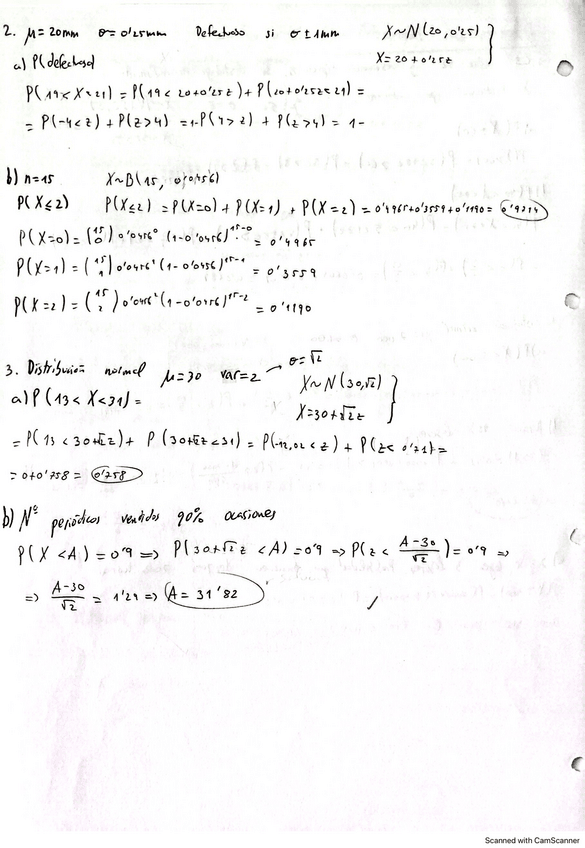 2. μ=20mm σ=0'25mm Defectuoso si σ±1mm X~N(20,0'25)
X=20+0'25z
a) P(defectuoso)
P(19<X<21) = P(19<20+0'25z)+P(20+0'25z<21) =
= P(-4<z) + P(z>4) = 1-P(4>z) + P(z>4) = 1-
b) n=15 X~B(15, 0'0456)
P(X≤2) P(X≤2) = P(X=0) + P(X=1) + P(X=2) = 0'4965+0'3559+0'1190= 0'9714
P(X=0) = (15 0) 0'0456⁰ (1-0'0456)¹⁵⁻⁰ = 0'4965
P(X=1) = (15 1) 0'0456¹ (1-0'0456)¹⁵⁻¹ = 0'3559
P(X=2) = (15 2) 0'0456² (1-0'0456)¹⁵⁻² = 0'1190
3. Distribución normal μ=30 var=2 → σ=√2
X~N(30,√2)
X=30+√2z
a) P(13<X<31) =
= P(13<30+√2z) + P(30+√2z<31) = P(-12,02<z) + P(z<0'71) =
= 0+0'758 = 0'758
b) Nº periódicos vendidos 90% ocasiones
P(X<A) = 0'9 ⇒ P(30+√2z<A) = 0'9 ⇒ P(z< A-30/√2) = 0'9 ⇒
⇒ A-30/√2 = 1'29 ⇒ A = 31'82
Scanned with CamScanner